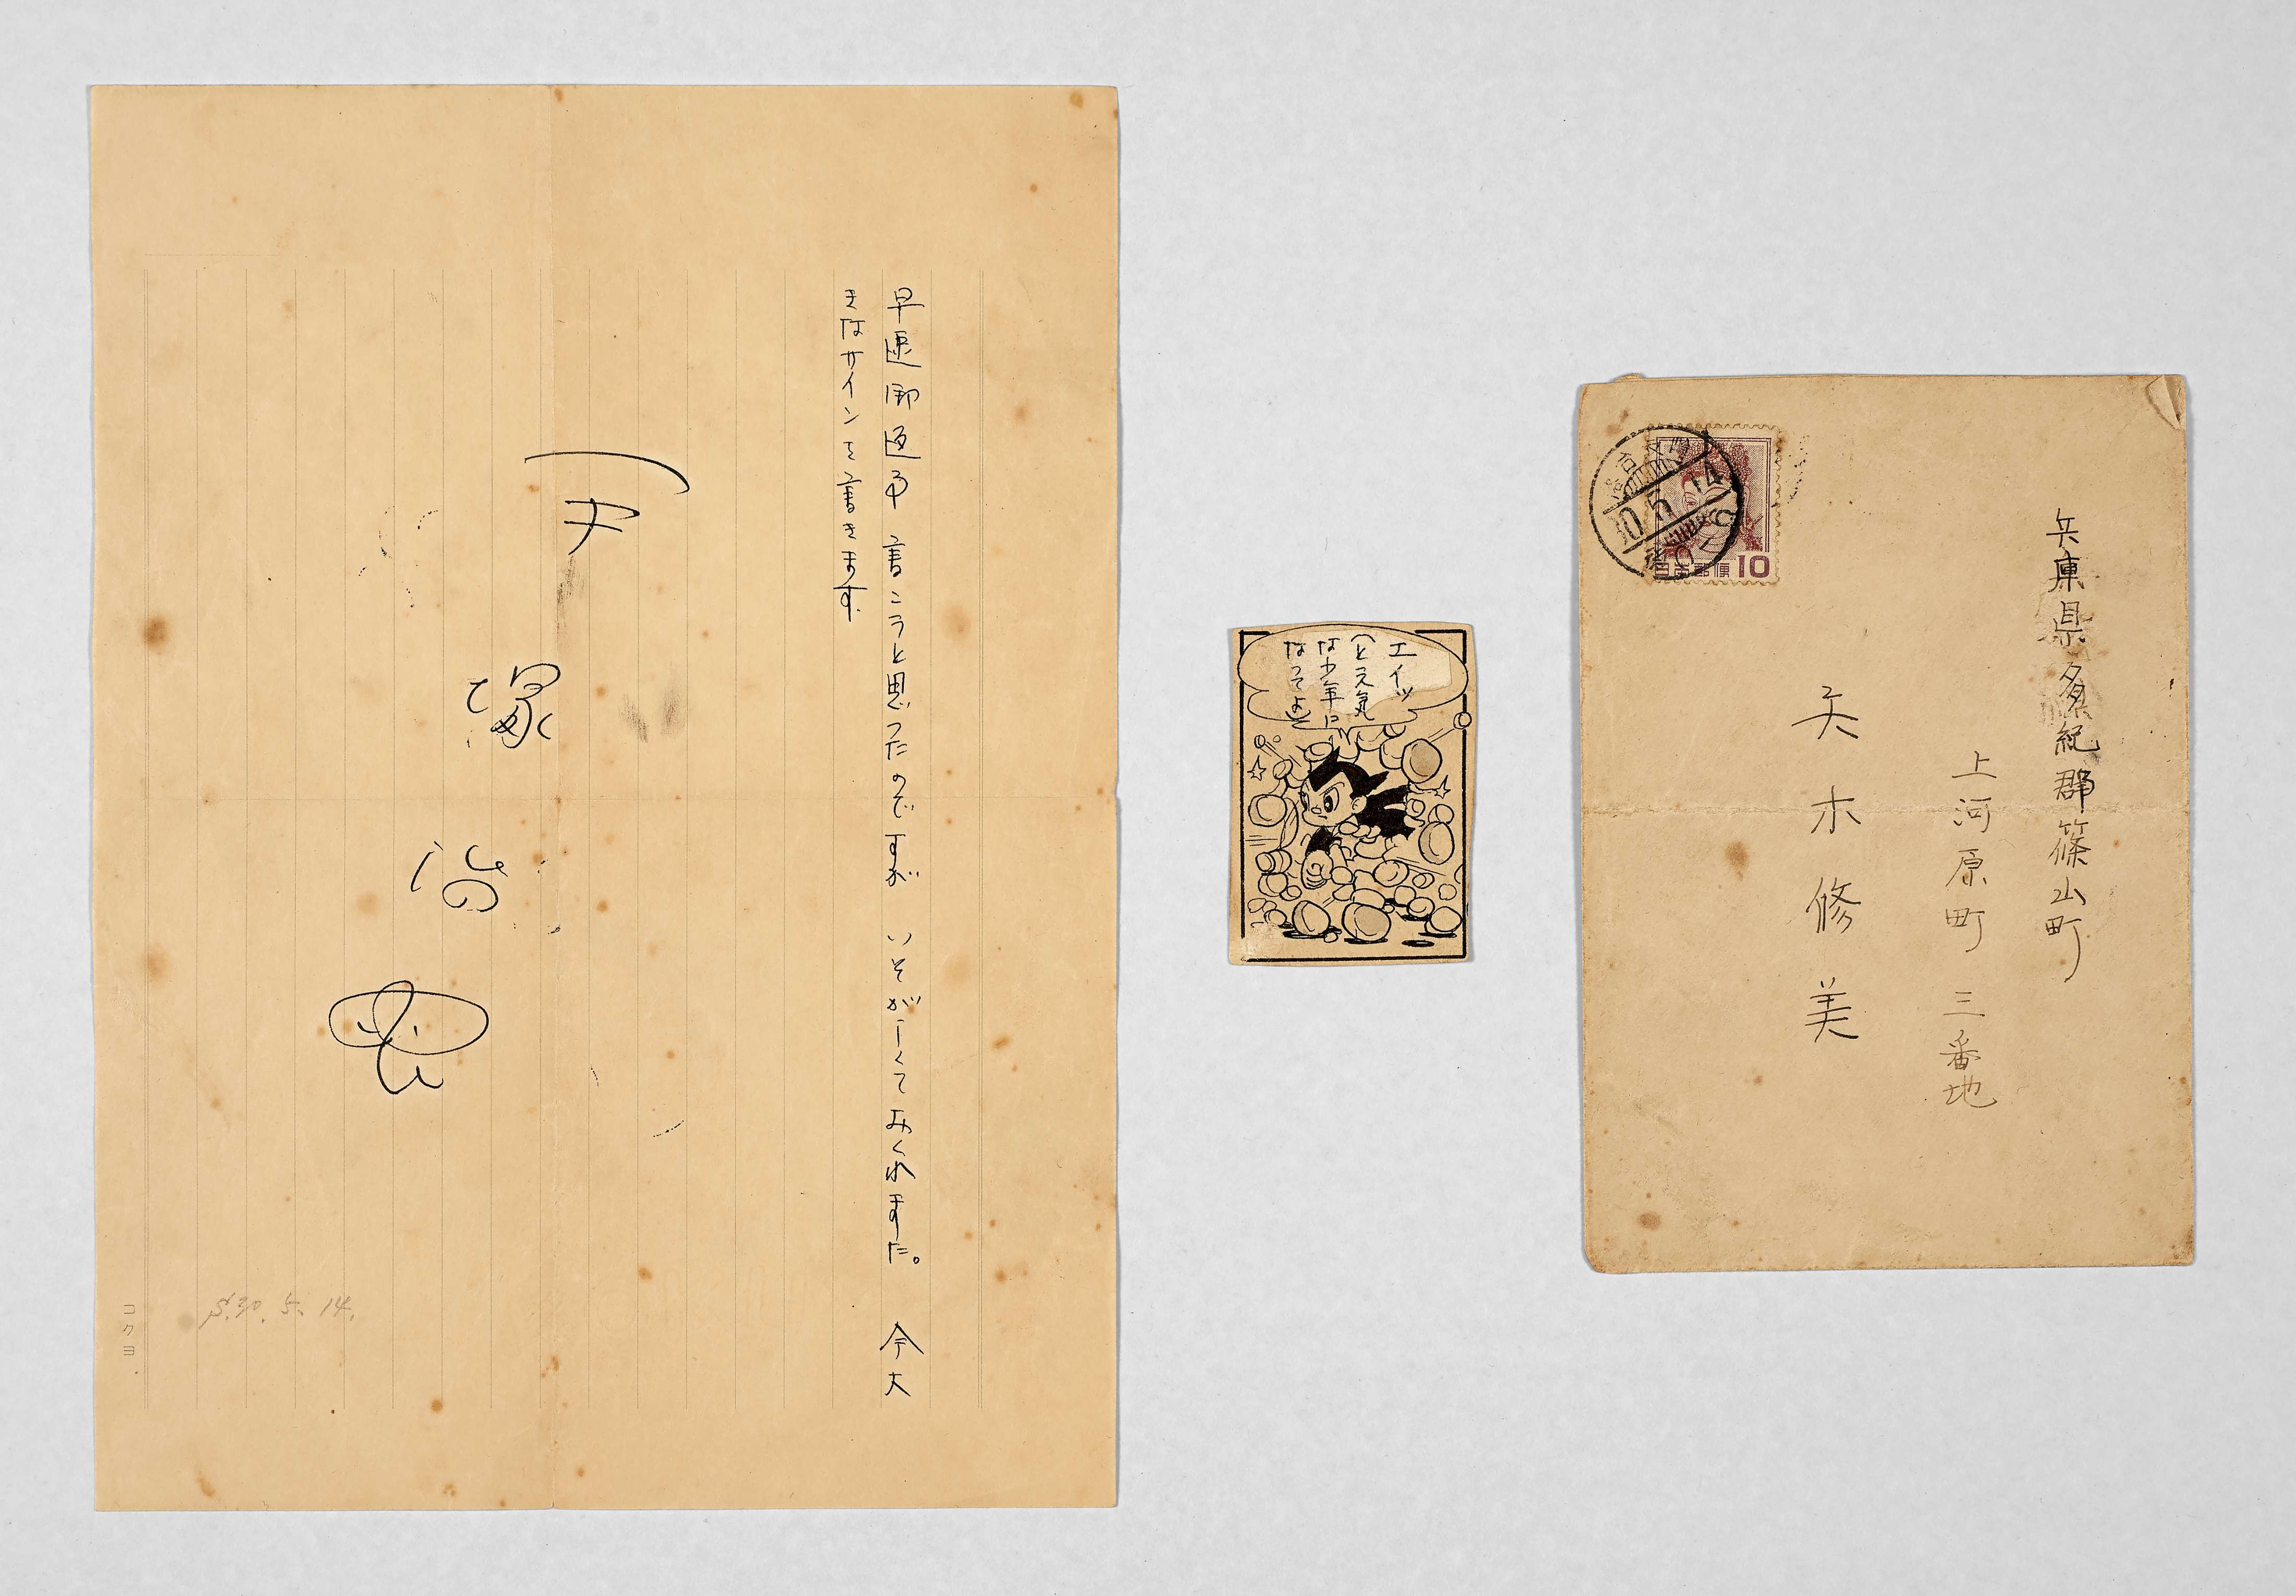 早速御返事書こうと思ったのですが いそがしくておくれました。 今大
きなサインを書きます
手塚治虫
S.30. 5. 14.
コクヨ
エイッ
もっと元気
な少年に
なってよ
兵庫県多紀郡篠山町
上河原町 三番地
矢木修美
日本郵便 10
30.5.14